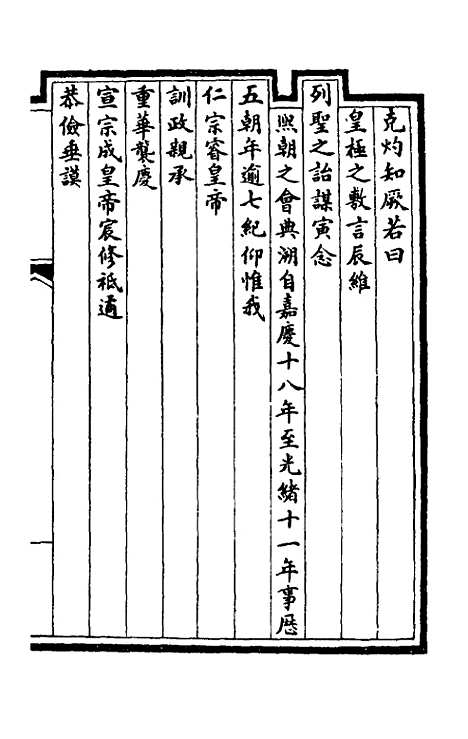 克灼知厥若曰
皇極之敷言辰維
列聖之詒謀寅念
熙朝之會典溯自嘉慶十八年至光緒十一年事歷
五朝年逾七紀仰惟我
仁宗睿皇帝
訓政親承
重華襲慶
宣宗成皇帝宸修祗遹
恭儉垂謨